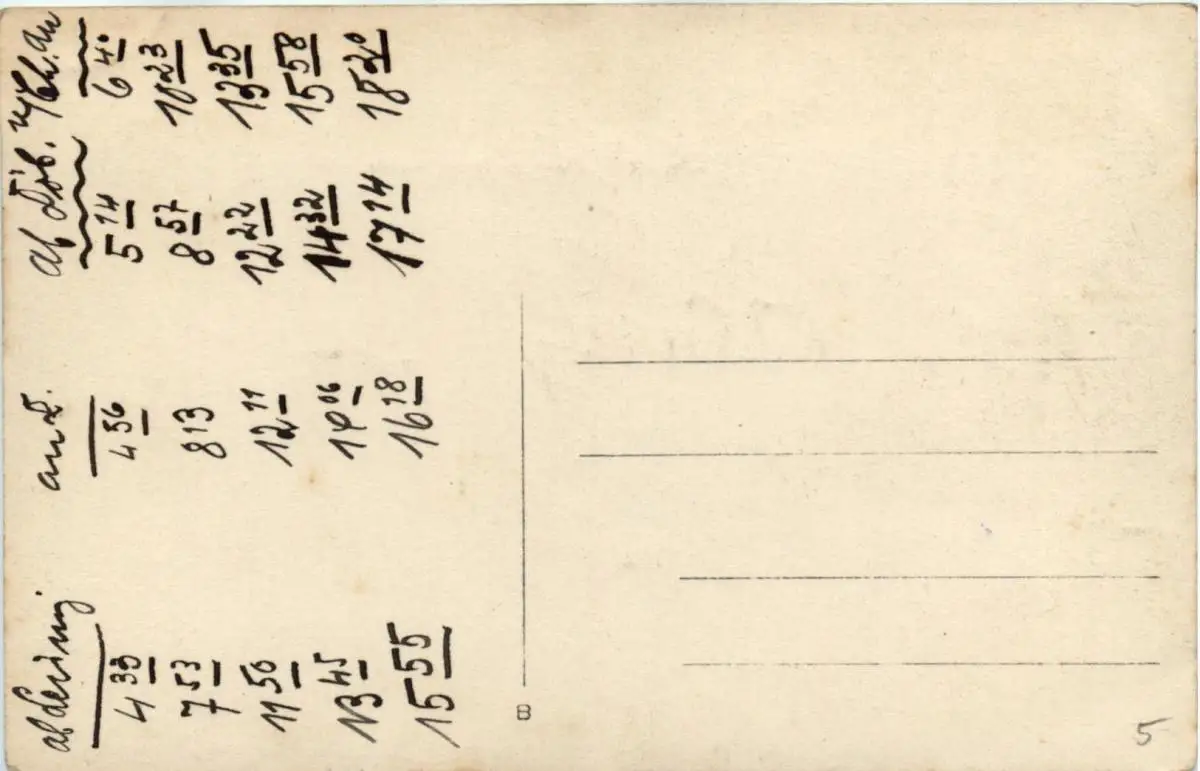 ab Leisnig an D. ab Döb. n/Ch. an
4 33 4 56 5 14 6 40
7 53 8 13 8 57 10 23
11 50 12 11 12 22 13 35
13 45 14 06 14 32 15 58
15 55 16 18 17 14 18 20
5